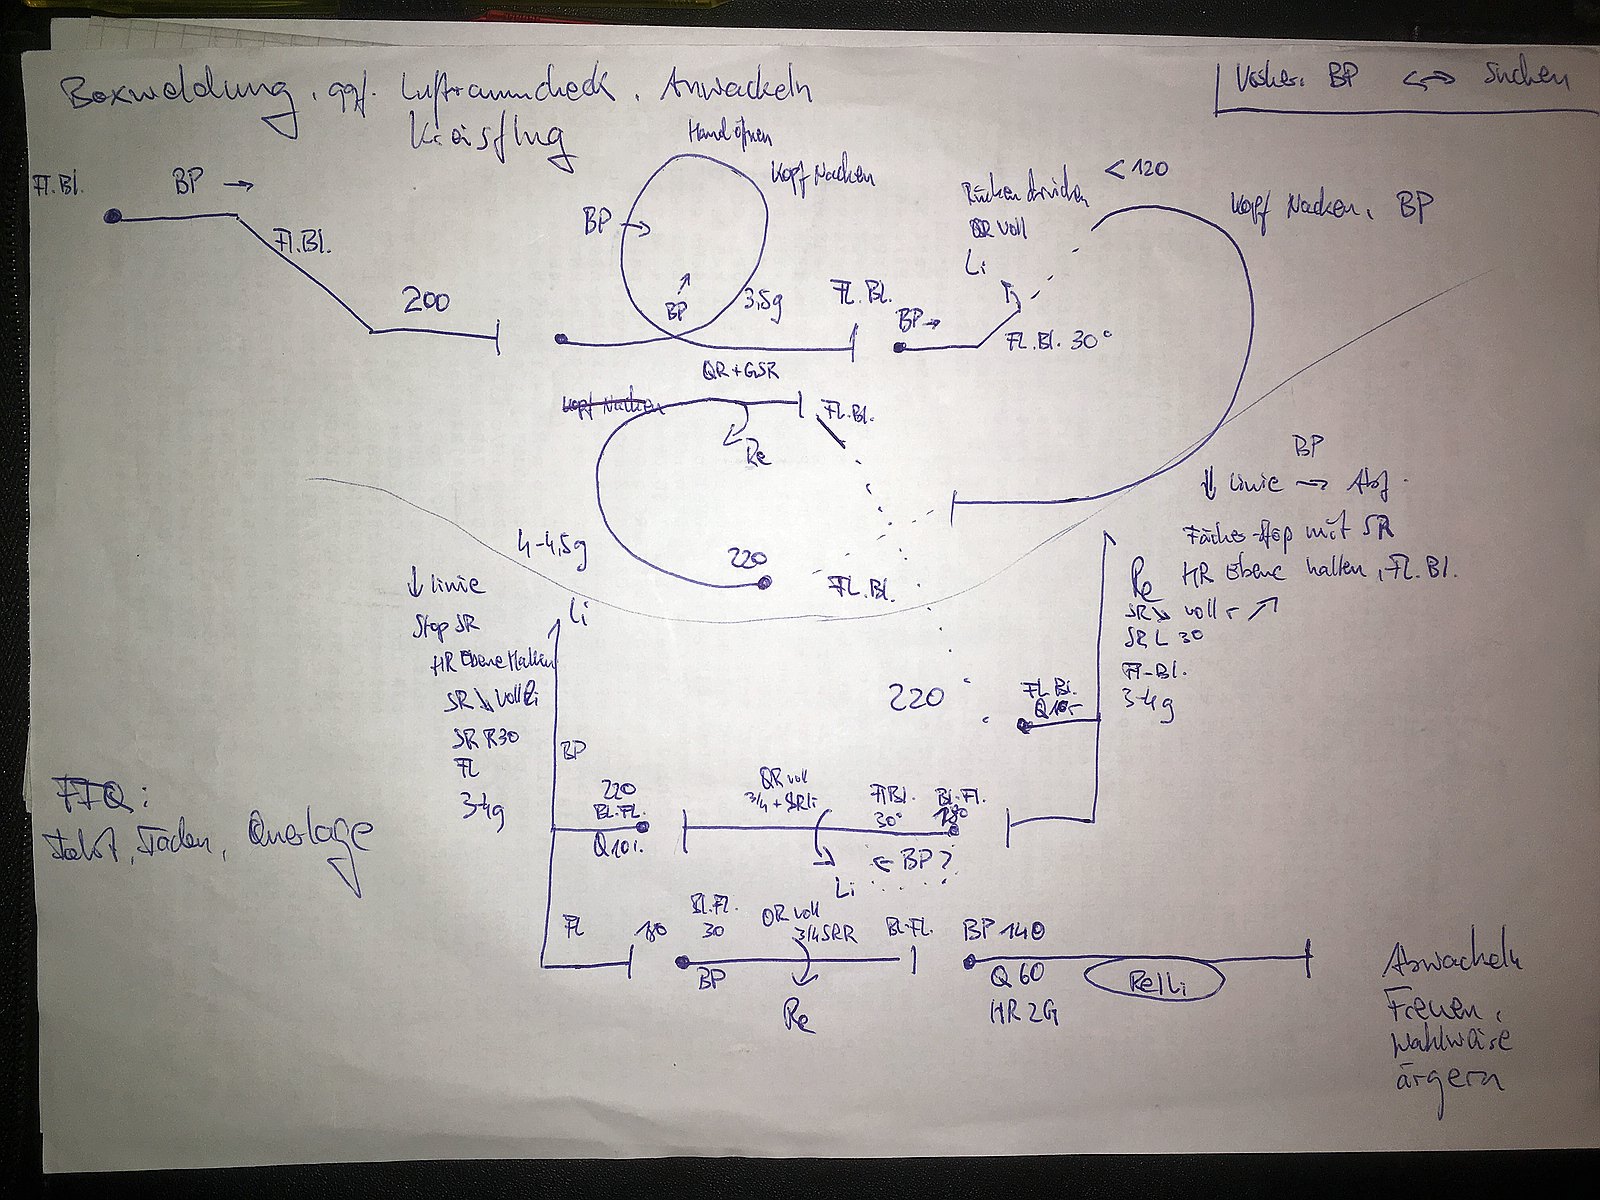 Boxmeldung, ggf. Luftraumcheck, Anwackeln
Kreisflug
Vorher: BP <-> Suchen
Fl.Bl.
BP →
Fl.Bl.
200
Hand öffnen
Kopf Nacken
BP →
BP
3,5g
Fl.Bl.
QR+GSR
BP→
Rücken drücken
QR voll
Li
Fl.Bl. 30°
< 120
Kopf Nacken, BP
Kopf Nacken
Re
Fl.Bl.
4-4,5g
220
Fl.Bl.
BP
↓ Linie → Abf.
Fächer-stop mit SR
Re HR Ebene halten, Fl.Bl.
SR ↘ voll - ↗
SR L 30
Fl-Bl.
3-4g
220
Fl.Bl.
↓ Linie
Stop SR
HR Ebene Halten
SR ↘ voll Li
SR R30
FL
3-4g
Li
BP
220
Bl.Fl.
Q10i.
QR voll
3/4 + SRli
Fl Bl.
30°
Bl.Fl.
180
← BP?
Li
FTQ:
Fahrt, Faden, Querlage
FL
180
Bl.Fl.
30
BP
QR voll
3/4 SRR
Re
Bl-Fl.
BP 140
Q 60
HR 2G
Re/Li
Abwackeln
Freuen,
wahlweise
ärgern